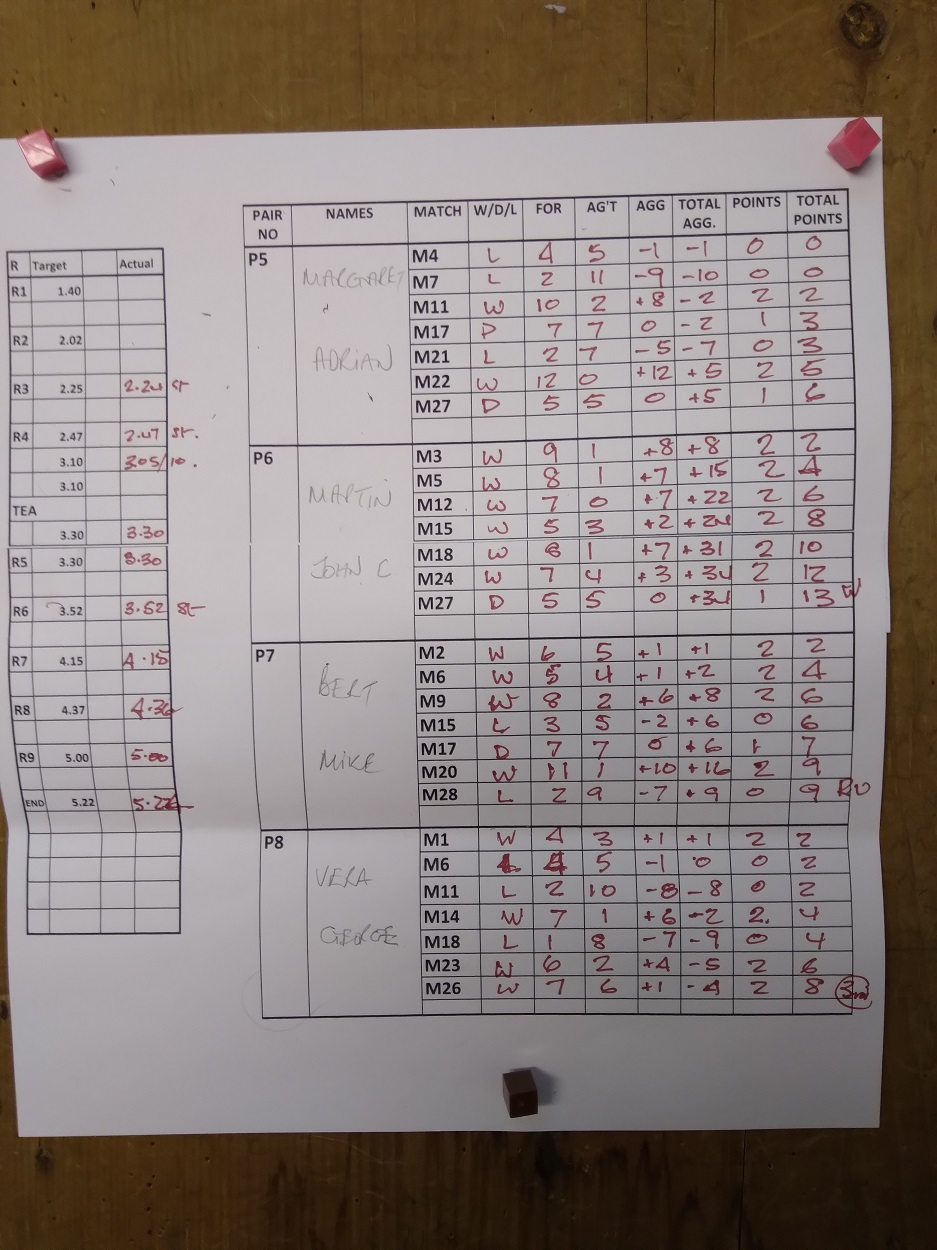 R Target Actual
R1 1.40
R2 2.02
R3 2.25 2.24 St
R4 2.47 2.47 St.
3.10 305/10.
3.10
TEA
3.30 3.30
R5 3.30 3.30
R6 3.52 3.52 St
R7 4.15 4.15
R8 4.37 4.36
R9 5.00 5.00
END 5.22 5.22
PAIR NO NAMES MATCH W/D/L FOR AG'T AGG TOTAL AGG. POINTS TOTAL POINTS
P5 MARGARET ADRIAN
M4 L 4 5 -1 -1 0 0
M7 L 2 11 -9 -10 0 0
M11 W 10 2 +8 -2 2 2
M17 D 7 7 0 -2 1 3
M21 L 2 7 -5 -7 0 3
M22 W 12 0 +12 +5 2 5
M27 D 5 5 0 +5 1 6
P6 MARTIN JOHN C
M3 W 9 1 +8 +8 2 2
M5 W 8 1 +7 +15 2 4
M12 W 7 0 +7 +22 2 6
M15 W 5 3 +2 +24 2 8
M18 W 8 1 +7 +31 2 10
M24 W 7 4 +3 +34 2 12
M27 D 5 5 0 +34 1 13 W
P7 BERT MIKE
M2 W 6 5 +1 +1 2 2
M6 W 5 4 +1 +2 2 4
M9 W 8 2 +6 +8 2 6
M15 L 3 5 -2 +6 0 6
M17 D 7 7 0 +6 1 7
M20 W 11 1 +10 +16 2 9
M28 L 2 9 -7 +9 0 9 RU
P8 VERA GEORGE
M1 W 4 3 +1 +1 2 2
M6 L 4 5 -1 0 0 2
M11 L 2 10 -8 -8 0 2
M14 W 7 1 +6 -2 2. 4
M18 L 1 8 -7 -9 0 4
M23 W 6 2 +4 -5 2 6
M26 W 7 6 +1 -4 2 8 3rd